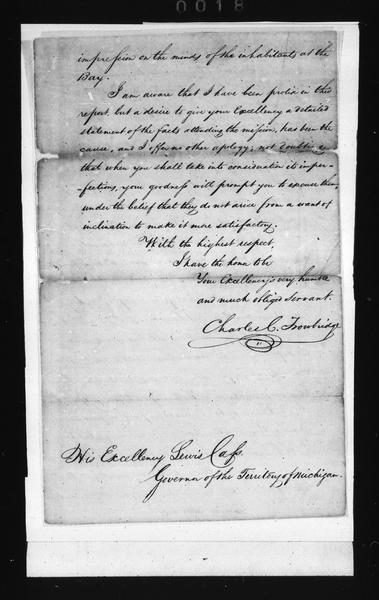 0018
impression on the minds of the inhabitants at the
Bay.
I am aware that I have been prolix in this
report, but a desire to give your Excellency a detailed
statement of the facts attending the mission, has been the
cause, and I offer no other apology; not doubting
that when you shall take into consideration its imper-
fections, your goodness will prompt you to excuse them,
under the belief that they do not arise from a want of
inclination to make it more satisfactory.
With the highest respect,
I have the honor to be
Your Excellency's very humble
and much obliged servant.
Charles C. Trowbridge
His Excellency Lewis Cass
Governor of the Territory of Michigan.